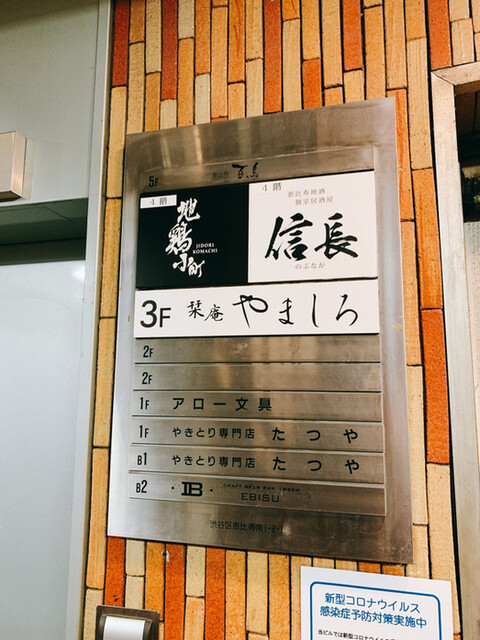 5F
4階
地鶏小町
JIDORI
KOMACHI
4階
恵比寿地酒
個室居酒屋
信長
のぶなが
3F 栞庵 やましろ
2F
2F
1F アロー文具
1F やきとり専門店 たつや
B1 やきとり専門店 たつや
B2 ・IB・ CRAFT BEER BAR
EBISU
渋谷区恵比寿南1-8-
新型コロナウイルス
感染症予防対策実施中
当ビルでは新型コロナウイルス